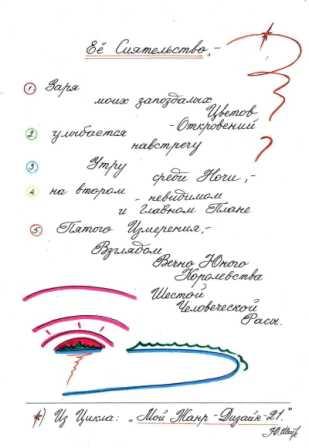 Её Сиятельство,-
① Заря
моих запоздалых
Цветов
-Откровений
② улыбается
навстречу
③ Утру
среди Ночи,-
④ на втором
- невидимом
и Главном Плане
⑤ Пятого Измерения,-
Взглядом
Вечно Юного
Королевства
Шестой
Человеческой
Расы.
*) Из Цикла: "Мой Жанр-Дизайн-21."